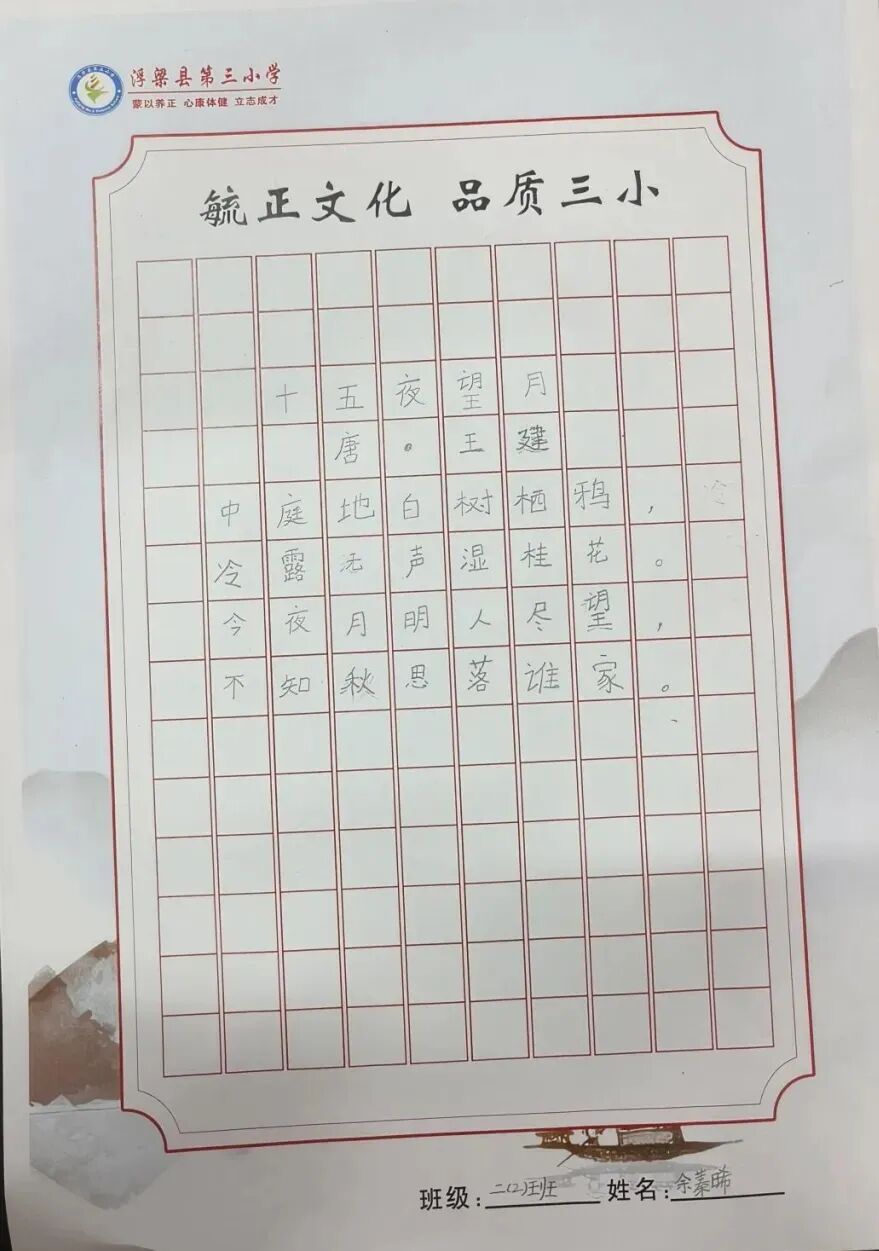 浮梁县第三小学
蒙以养正 心康体健 立志成才
毓正文化 品质三小
十五夜望月
唐。王建
中庭地白树栖鸦，冷
冷露无声湿桂花。
今夜月明人尽望，
不知秋思落谁家。
班级：二(2)班 姓名：余蓁晞